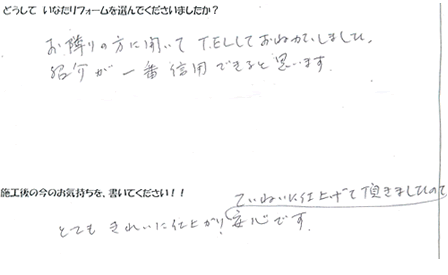 どうして いなたりフォームを選んでくださいましたか？
お隣りの方に聞いて T.E.Lしてお ねがいしました。
紹介が一番信用できると思います。
施工後の今のお気持ちを、書いてください！！
ていねいに仕上げて頂きましたので
とても きれいに仕上がり、安心です。